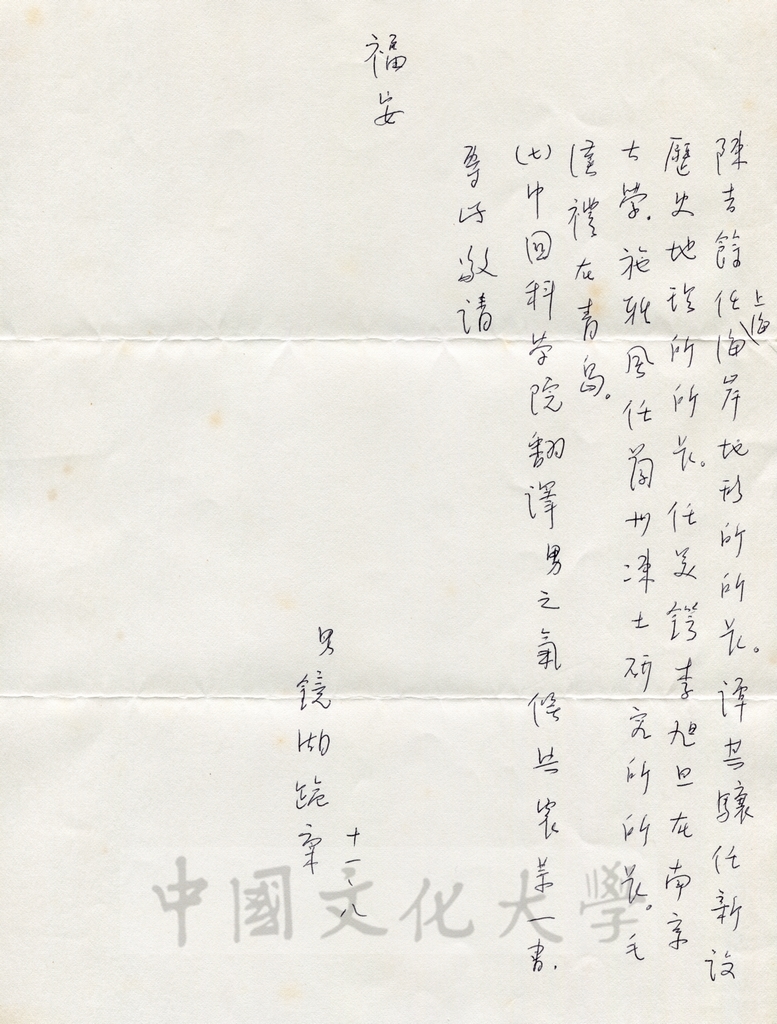 陳吉餘任上海海岸地形所所長。譚其驤任新設
歷史地理所所長。任美鍔李旭旦在南京
大學。施雅風任蘭州凍土研究所所長。毛
漢禮在青島。
(七)中国科学院翻譯男之氣候與農業一書.
專此敬请
福安
男鏡湖跪稟
十一、八
中國文化大學